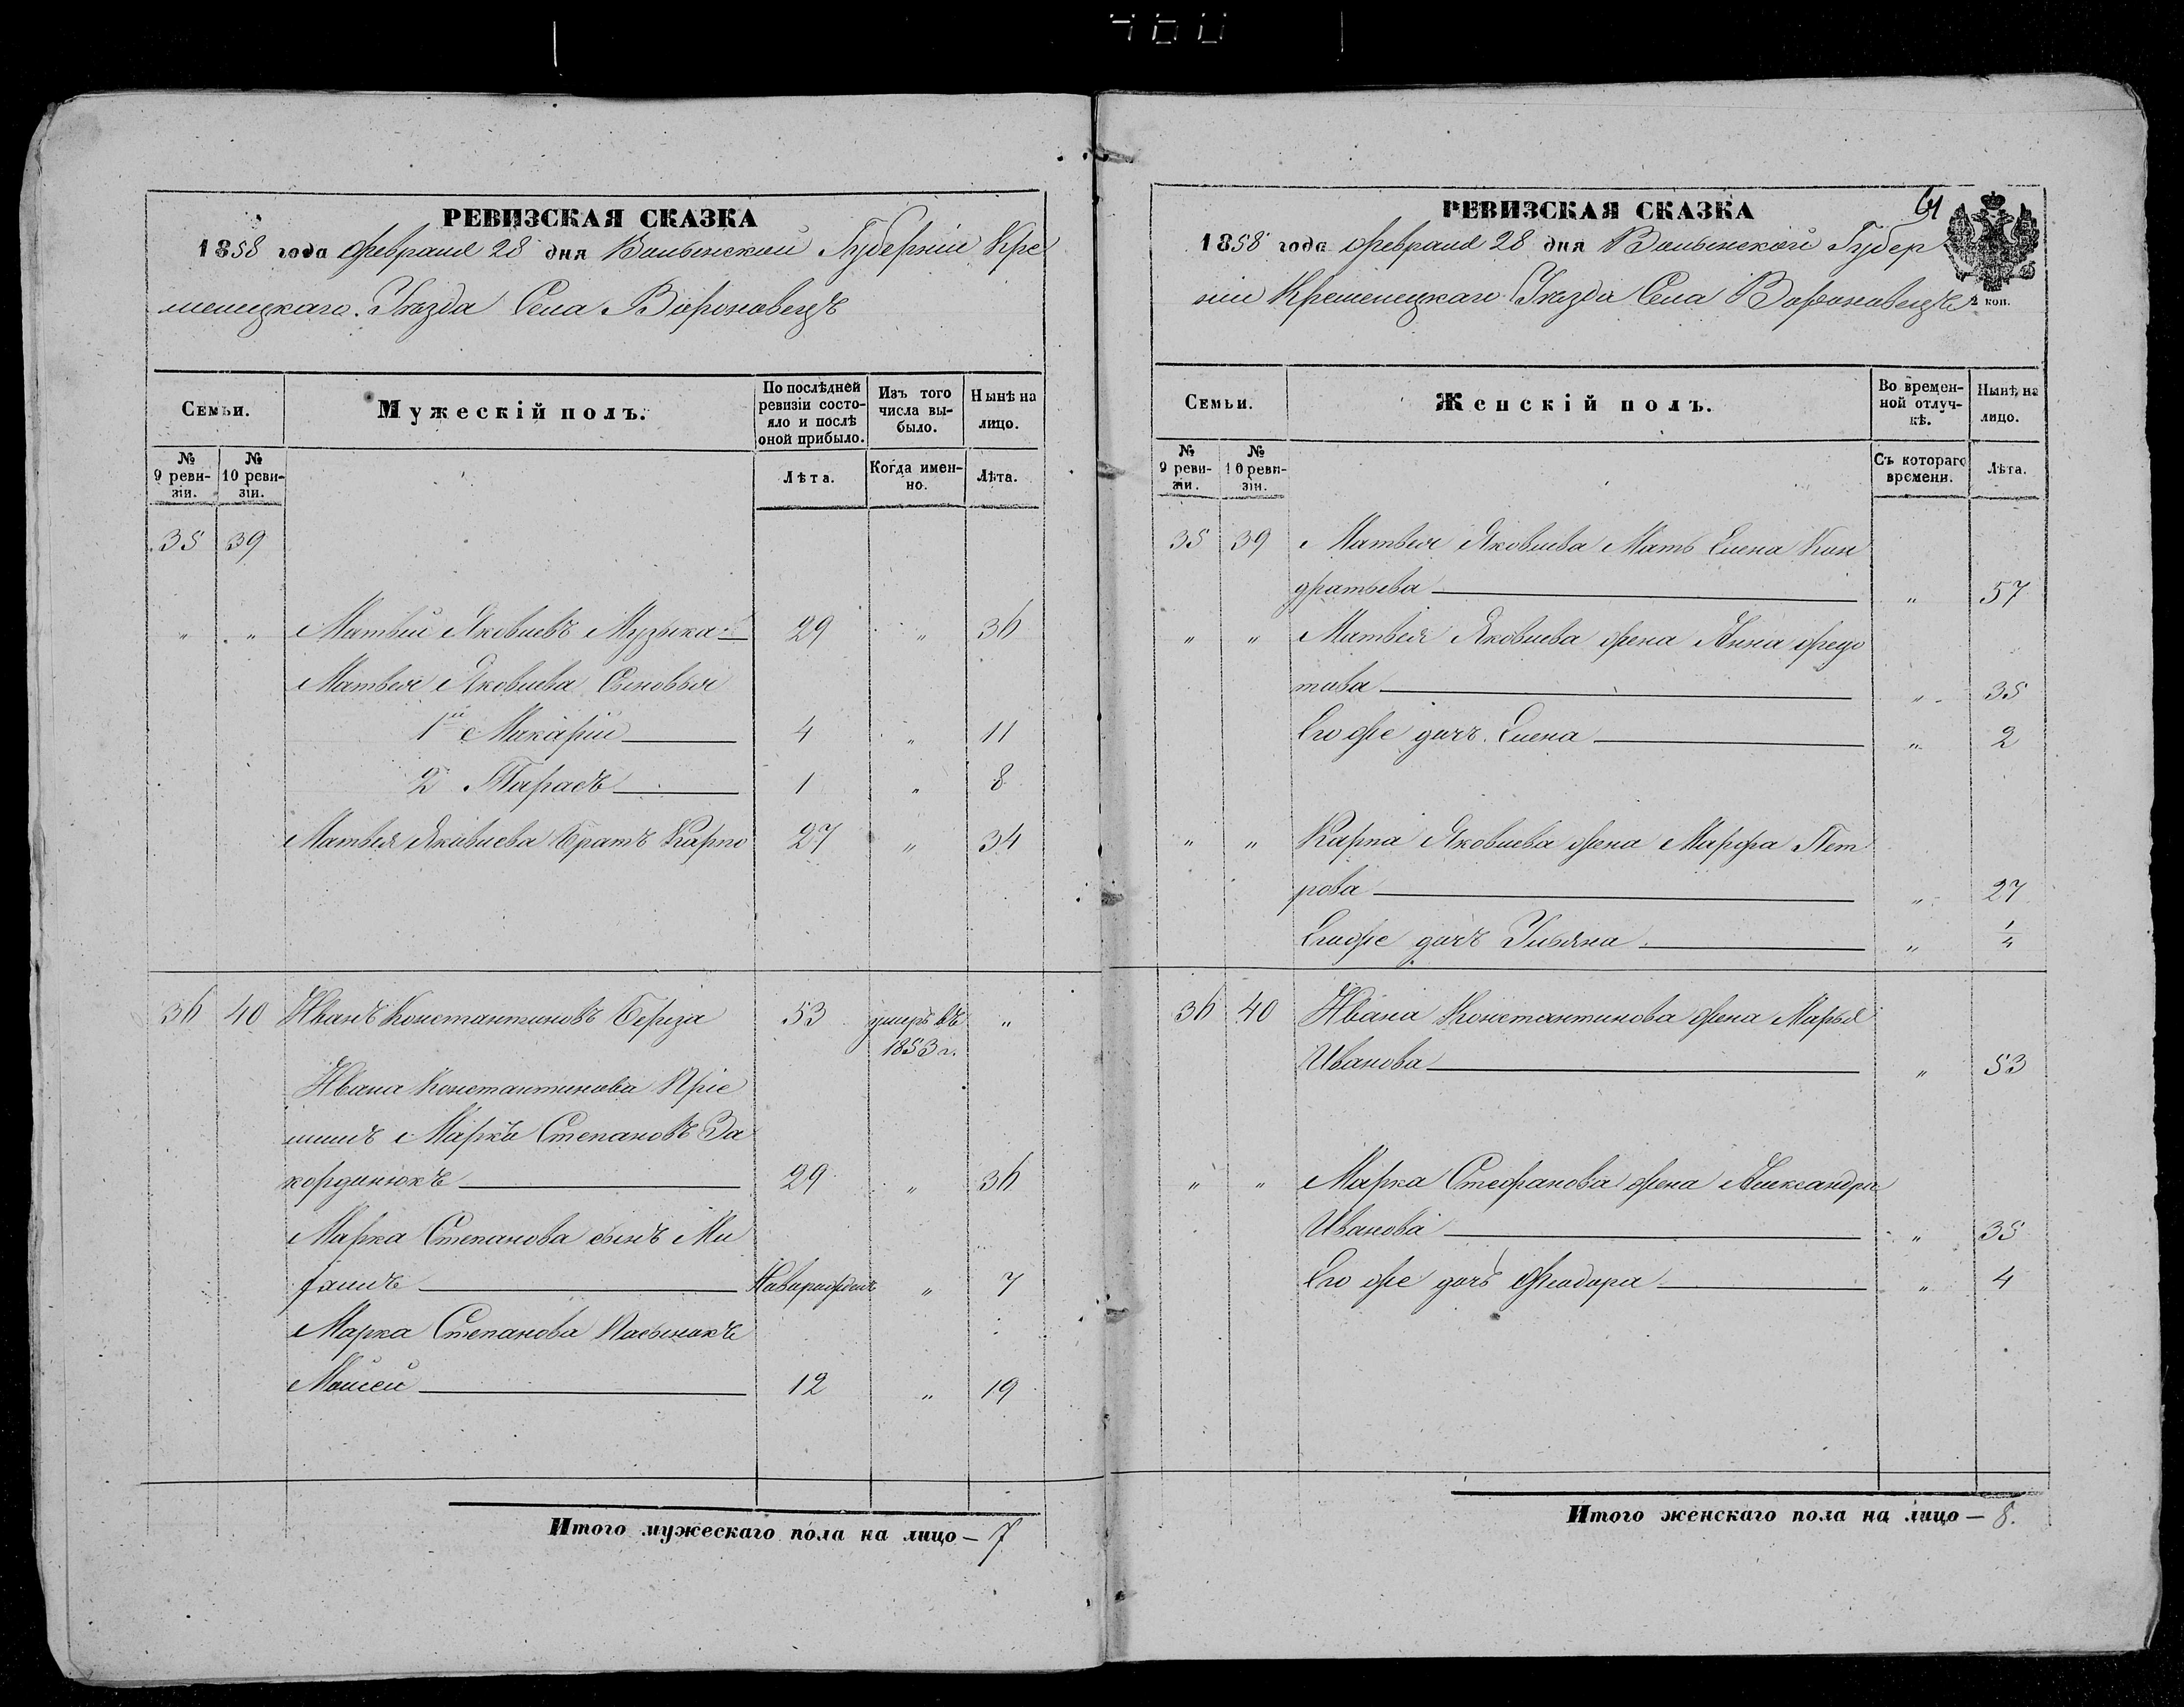 460
РЕВИЗСКАЯ СКАЗКА
1858 года февраля 28 дня Волынской Губерніи Кре
менецкаго Уѣзда Села Вороновецъ
Семьи.
Мужескій полъ.
По послѣдней ревизіи состояло и послѣ оной прибыло.
Изъ того числа выбыло.
Нынѣ на лицо.
№ 9 ревизіи.
№ 10 ревизіи.
Лѣта.
Когда именно.
Лѣта.
35 39
" " Матвій Яковлевъ Музыка 29 " 36
Матвея Яковлева Сыновья
1й Макарій 4 " 11
2 Тарасъ 1 " 8
Матвея Яковлева Братъ Карпо 27 " 34
36 40 Иванъ Константиновъ Береза 53 умеръ въ "
1853 г.
Ивана Константинова Пріе
мышъ Марко Степановъ За
кординюкъ 29 " 36
Марка Степанова сынъ Ми
хаилъ Новорожденъ " 7
Марка Степанова Пасынокъ
Мойсей 12 " 19
Итого мужескаго пола на лицо — 7
РЕВИЗСКАЯ СКАЗКА
61
1858 года февраля 28 дня Волынской Губер
ніи Кременецкаго Уѣзда Села Вороновецъ
коп.
Семьи.
Женскій полъ.
Во временной отлучкѣ.
Нынѣ на лицо.
№ 9 ревизіи.
№ 10 ревизіи.
Съ котораго времени.
Лѣта.
35 39 Матвея Яковлева Мать Елена Кон
дратьева " 57
" " Матвея Яковлева жена Анна Федо
това " 35
Его же дочь Елена " 2
" " Карпа Яковлева жена Марфа Пет
рова " 27
Его же дочь Ульяна " 1/4
36 40 Ивана Константинова жена Марья
Иванова " 53
" " Марка Стефанова жена Александра
Иванова " 35
Его же дочь Феодора " 4
Итого женскаго пола на лицо — 8.